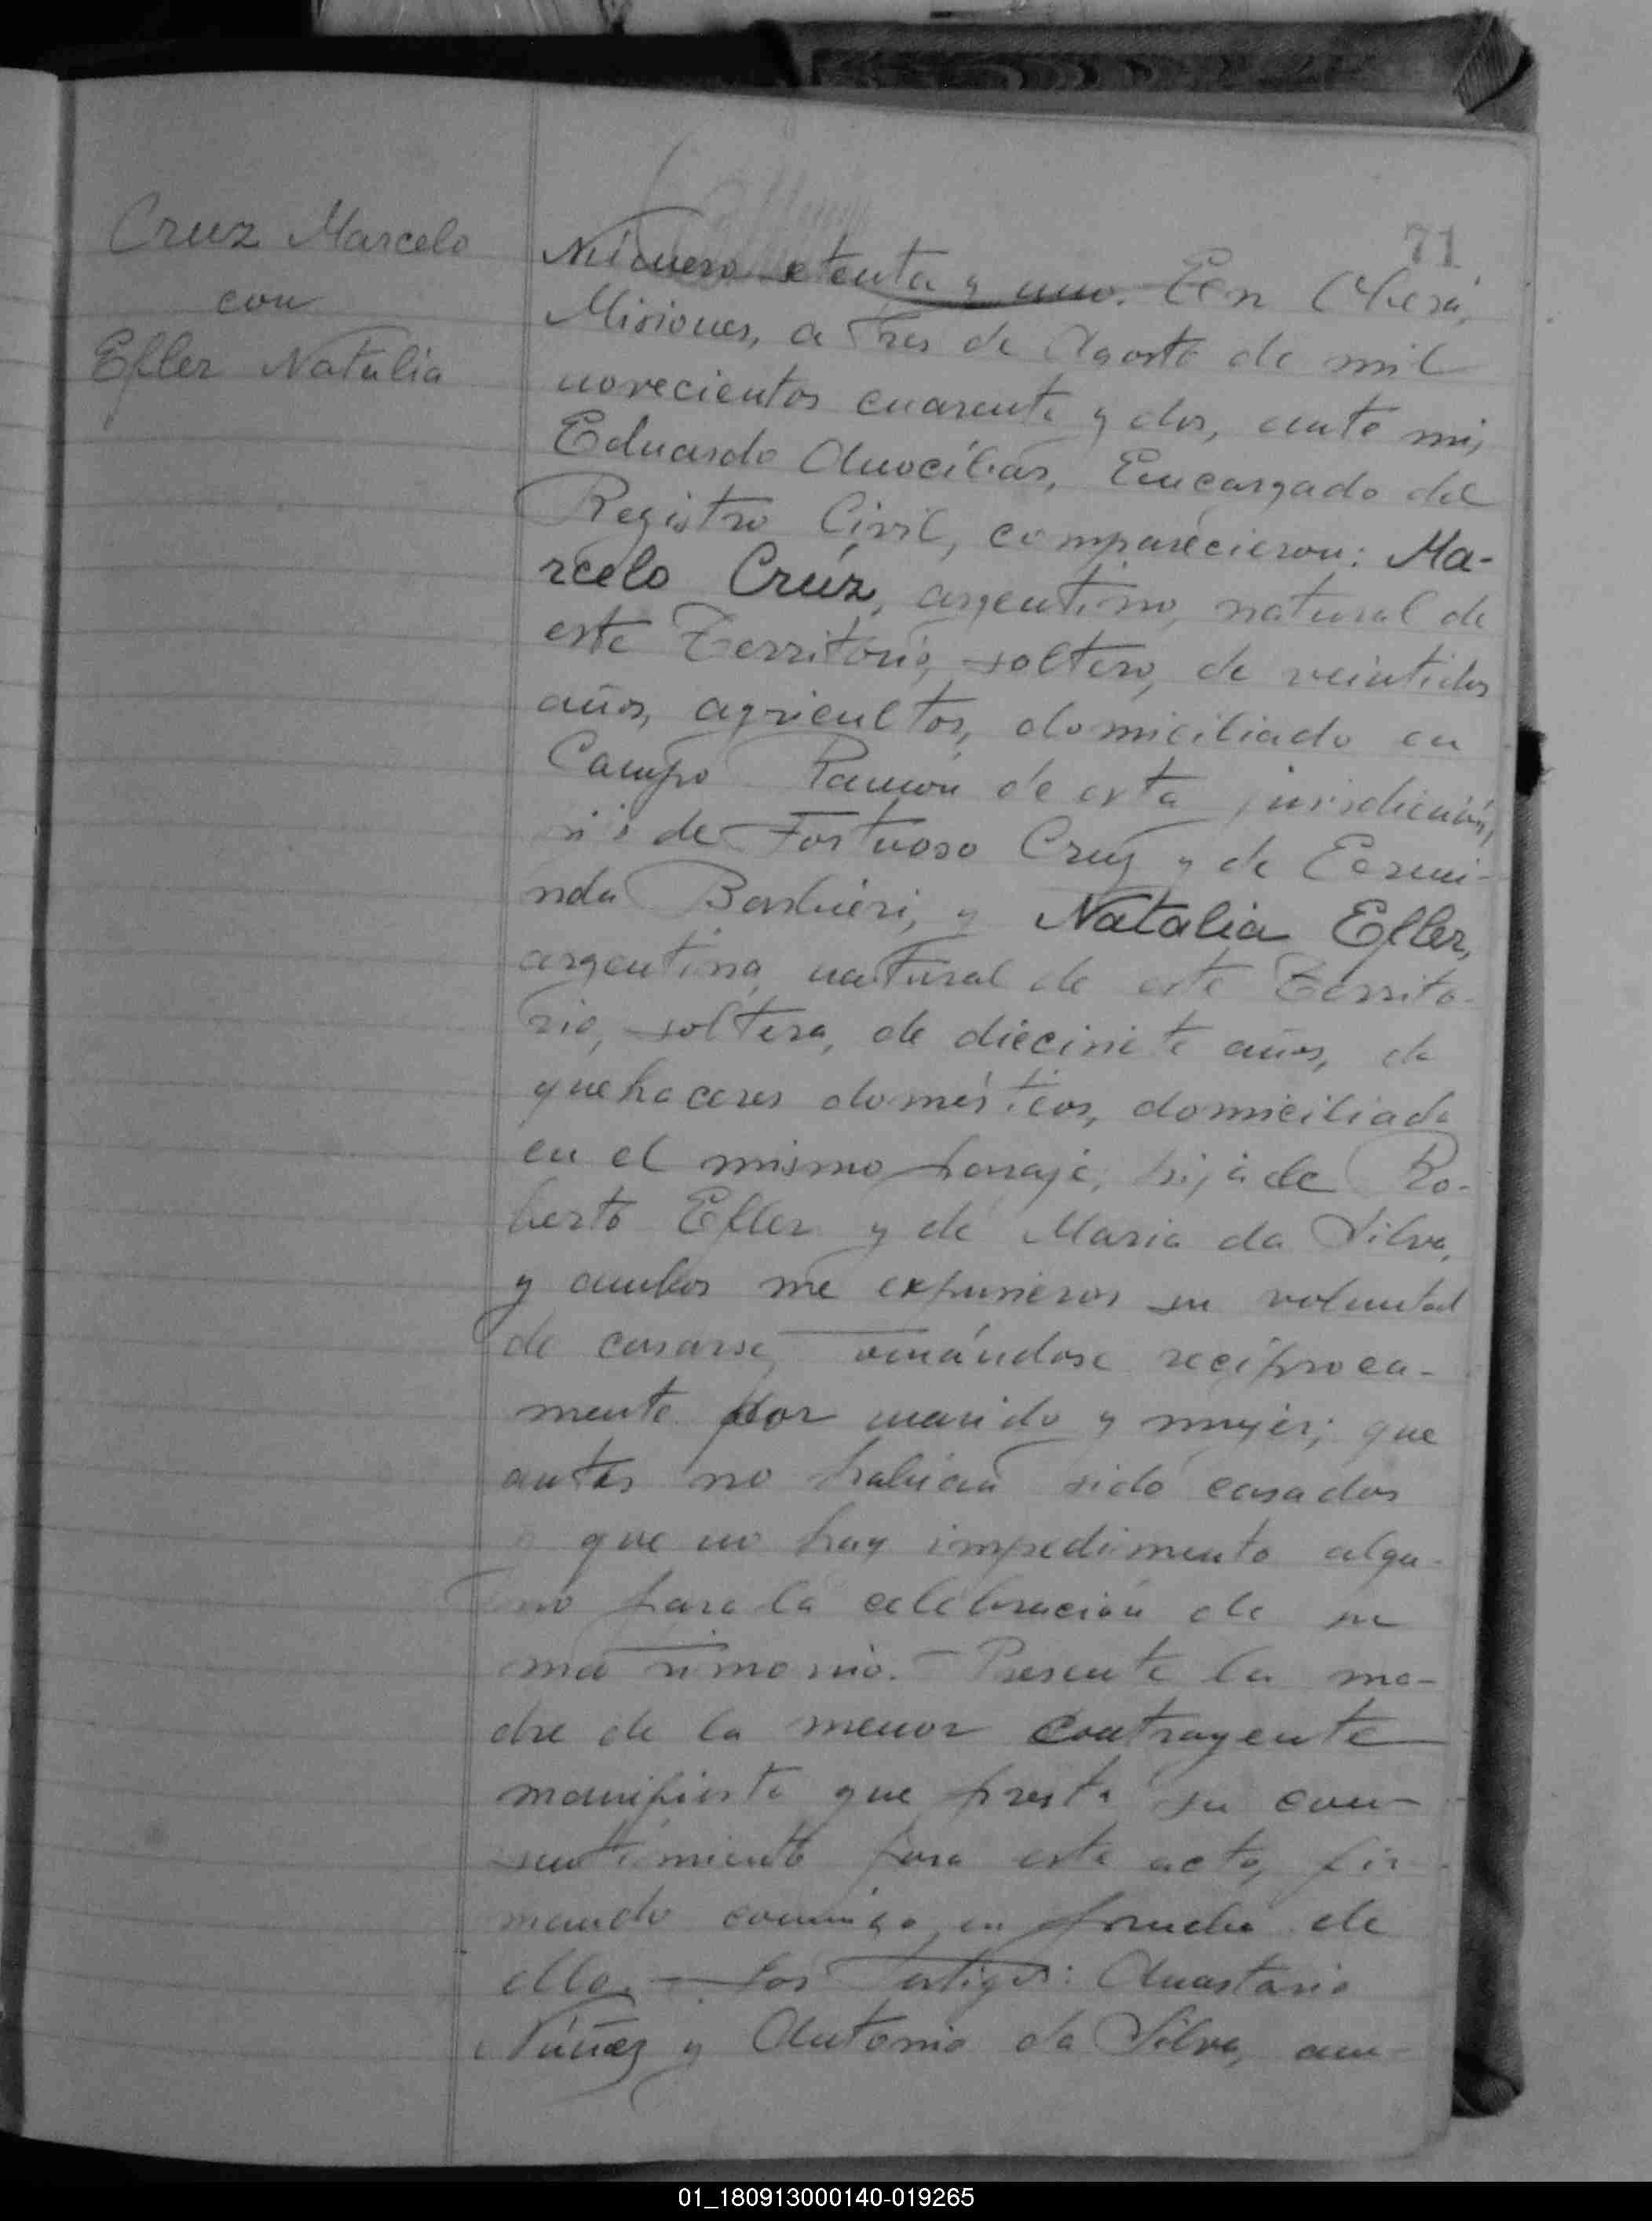 71
Cruz Marcelo
con
Efler Natalia
Número setenta y uno. En Oberá,
Misiones, a tres de Agosto de mil
novecientos cuarenta y dos, ante mi,
Eduardo Anocíbar, Encargado del
Registro Civil, comparecieron: Ma-
rcelo Crúz, argentino, natural de
este Territorio, soltero, de veintidos
años, agricultor, domiciliado en
Campo Ramón de esta jurisdicción,
de Fortuoso Cruz y de Ermi-
nda Barbieri, y Natalia Efler,
argentina, natural de este Territo-
rio, soltera, de diecisiete años, de
quehaceres domésticos, domiciliada
en el mismo paraje, hija de Ro-
berto Efler y de Maria da Silva,
y ambos me expusieron su voluntad
de casarse, tomándose recíproca-
mente por marido y mujer; que
antes no habian sido casados
que no hay impedimento algu-
no para la celebración de su
matrimonio. - Presente la ma-
dre de la menor contrayente
manifiesta que presta su con-
sentimiento para este acto, fir-
mando conmigo en prueba de
ello. - Los testigos: Anastasio
Núñez y Antonio da Silva, am-
01_180913000140-019265